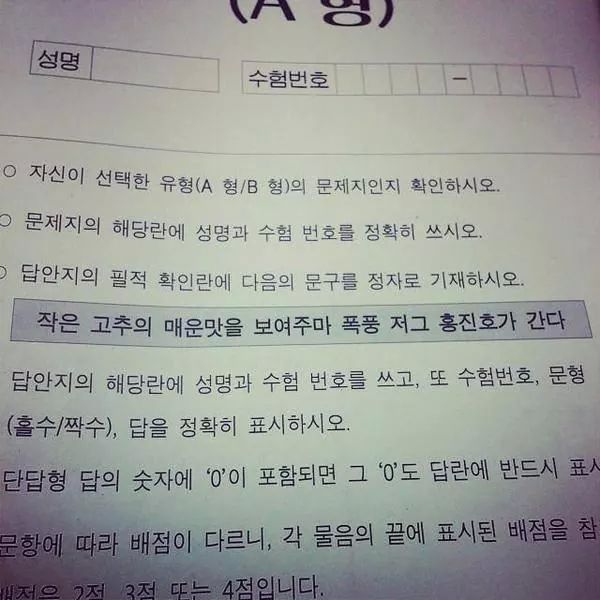 (A 형)
성명
수험번호 –
○ 자신이 선택한 유형(A 형/B 형)의 문제지인지 확인하시오.
○ 문제지의 해당란에 성명과 수험 번호를 정확히 쓰시오.
○ 답안지의 필적 확인란에 다음의 문구를 정자로 기재하시오.
작은 고추의 매운맛을 보여주마 폭풍 저그 홍진호가 간다
답안지의 해당란에 성명과 수험 번호를 쓰고, 또 수험번호, 문형
(홀수/짝수), 답을 정확히 표시하시오.
단답형 답의 숫자에 '0'이 포함되면 그 '0'도 답란에 반드시 표시
문항에 따라 배점이 다르니, 각 물음의 끝에 표시된 배점을 참
배점은 2점, 3점 또는 4점입니다.